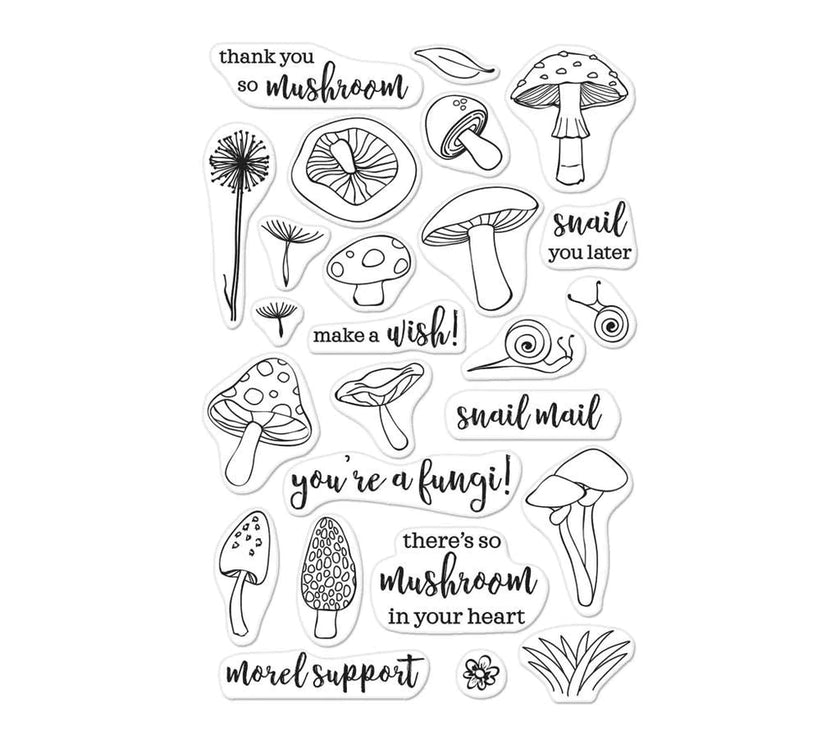 thank you
so mushroom
snail
you later
make a wish!
snail mail
you're a fungi!
there's so
mushroom
in your heart
morel support